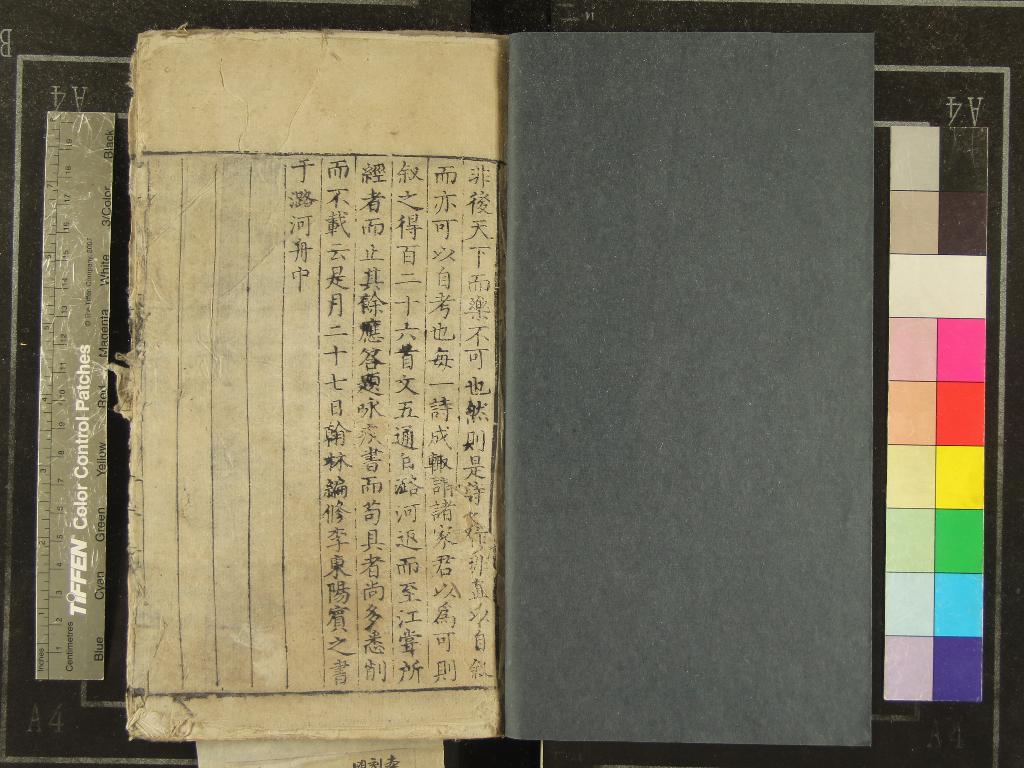 非後天下而樂不可也然則是詩之作非直以自敘
而亦可以自考也每一詩成輒請諸家君以為可則
叙之得百二十六首文五通自潞河返而至江嘗所
經者而止其餘應答題咏於書而苟具者尚多悉削
而不載云是月二十七日翰林編修李東陽賓之書
于潞河舟中
A4
A4
A4
A4
B
Inches
Centimetres
TIFFEN Color Control Patches
© The Tiffen Company, 2007
Blue Cyan Green Yellow Red Magenta White 3/Color Black